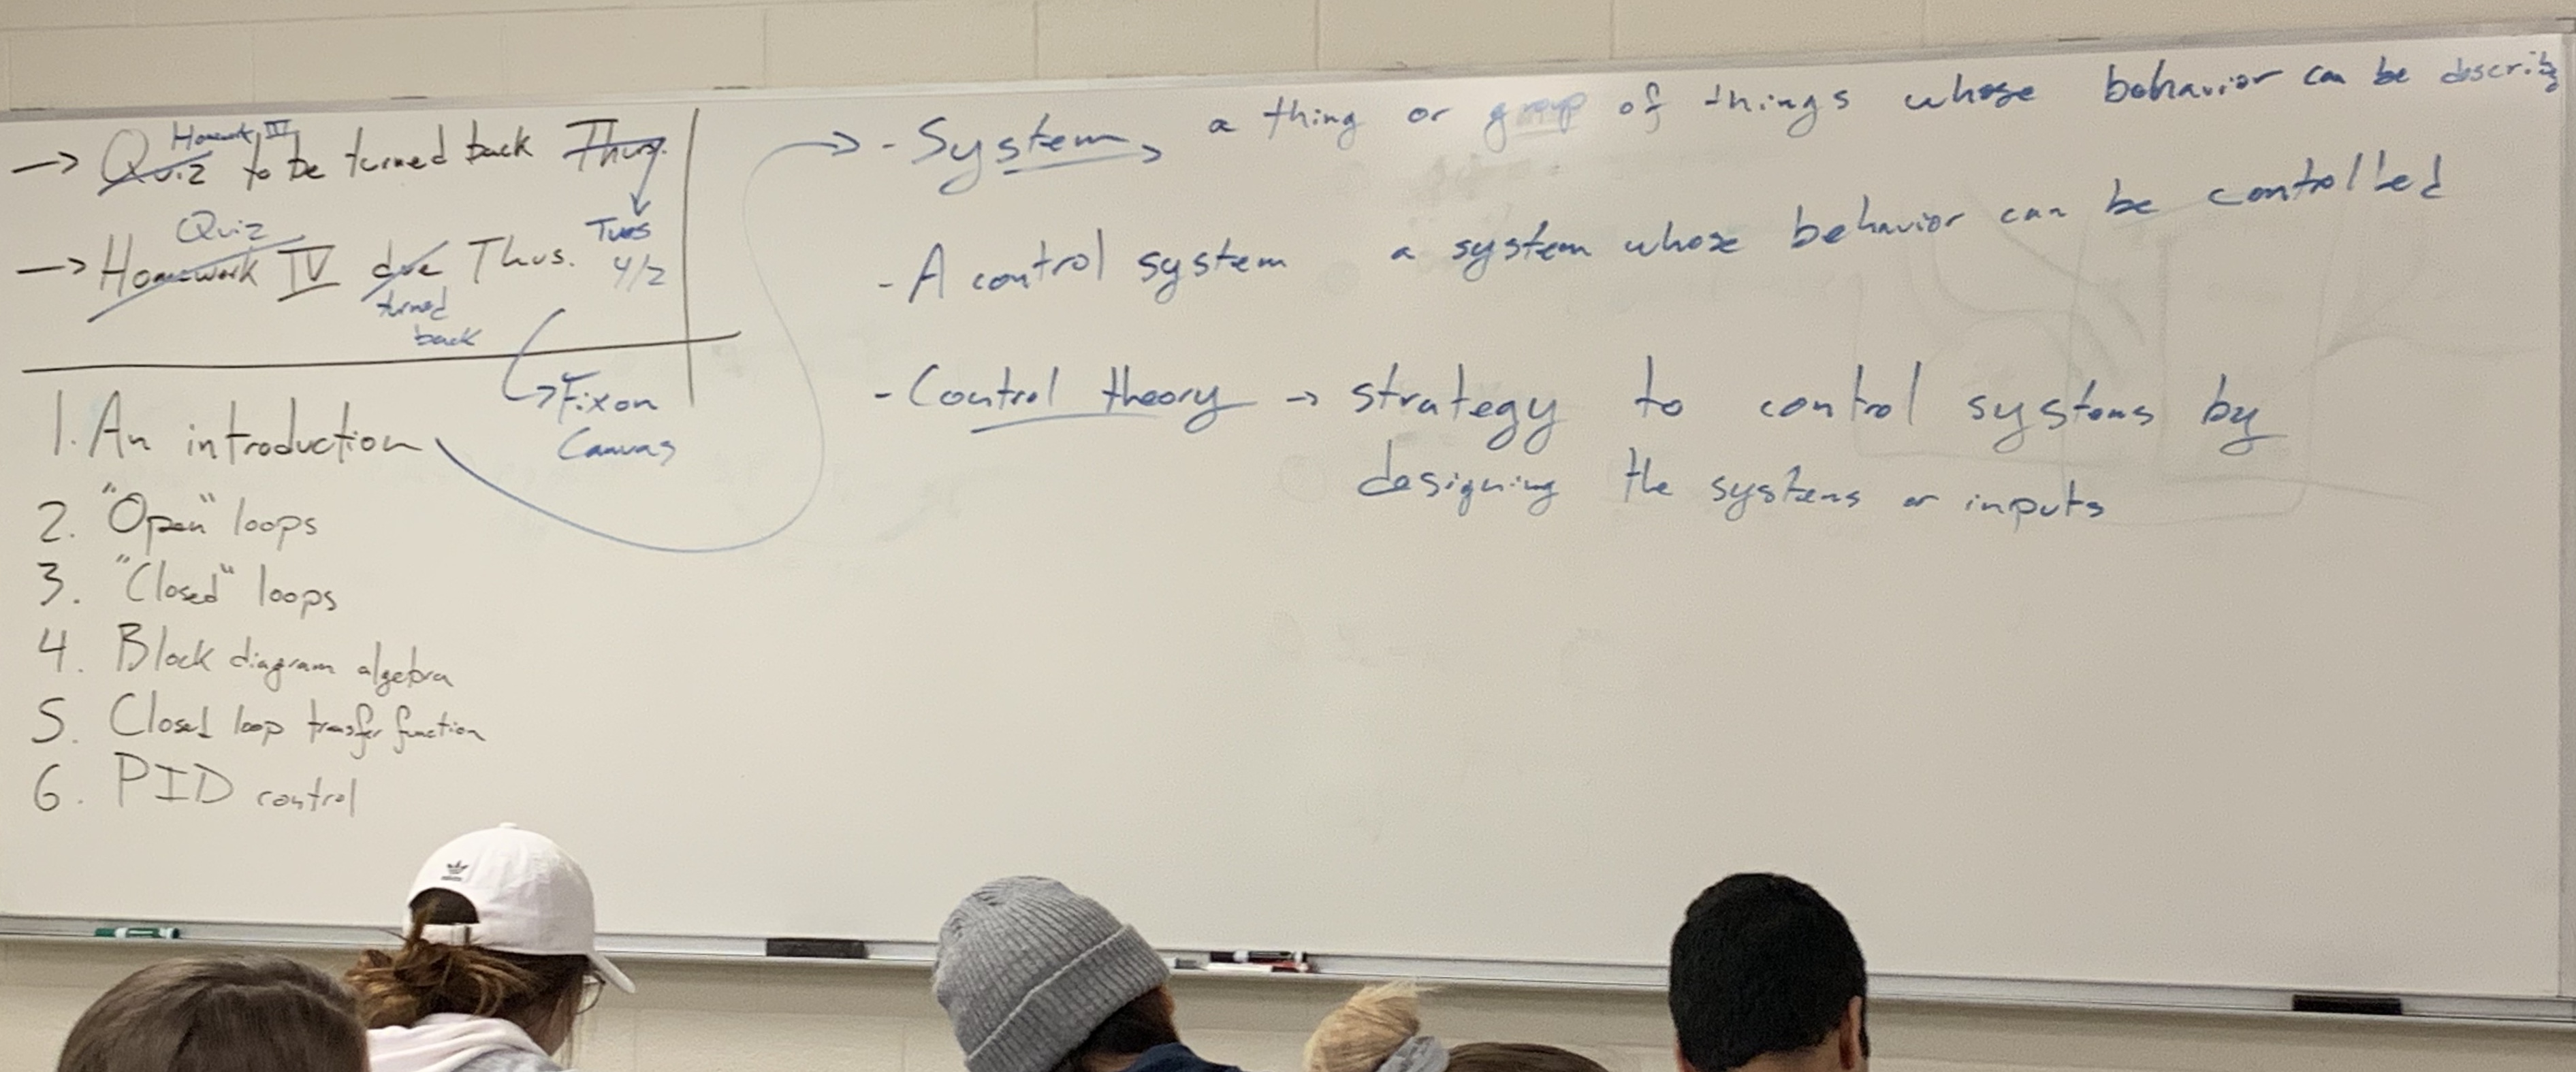 Homework III
→ Quiz to be turned back Thus.
Quiz
Tues
→ Homework IV due Thus. 4/2
turned
back
→ Fix on
Canvas
1. An introduction
2. "Open" loops
3. "Closed" loops
4. Block diagram algebra
5. Closed loop transfer function
6. PID control
→ - System, a thing or group of things whose behavior can be describ
- A control system a system whose behavior can be controlled
- Control theory → strategy to control systems by
designing the systems or inputs